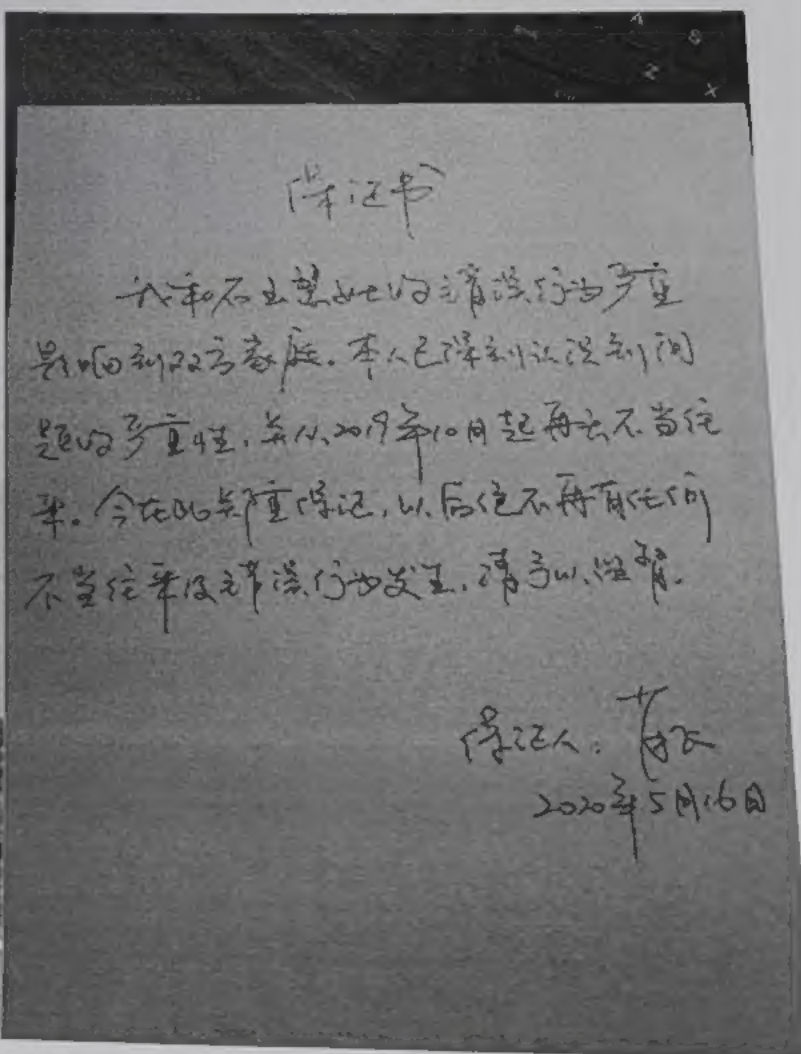 保证书
我和石玉慧女士的错误行为严重
影响到双方家庭。本人已深刻认识到问
题的严重性，并从2019年10月起再无不当往
来。今在此郑重保证，以后绝不再有任何
不当往来及错误行为发生，请予以监督。
保证人：
2020年5月16日